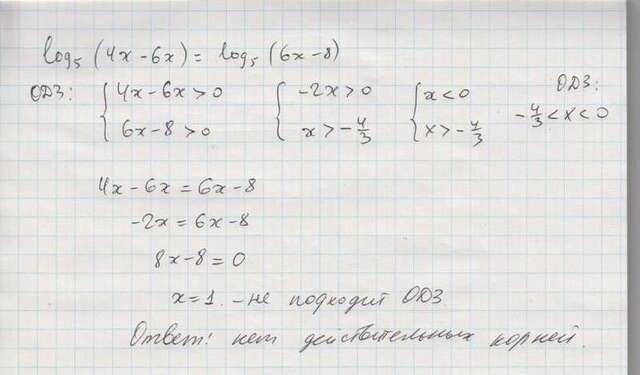 log₅ (4x - 6x) = log₅ (6x - 8)
ОДЗ: { 4x - 6x > 0 { -2x > 0 { x < 0 ОДЗ:
{ 6x - 8 > 0 { x > -4/3 { x > -4/3 -4/3 < x < 0
4x - 6x = 6x - 8
-2x = 6x - 8
8x - 8 = 0
x = 1 - не подходит ОДЗ
Ответ: нет действительных корней.